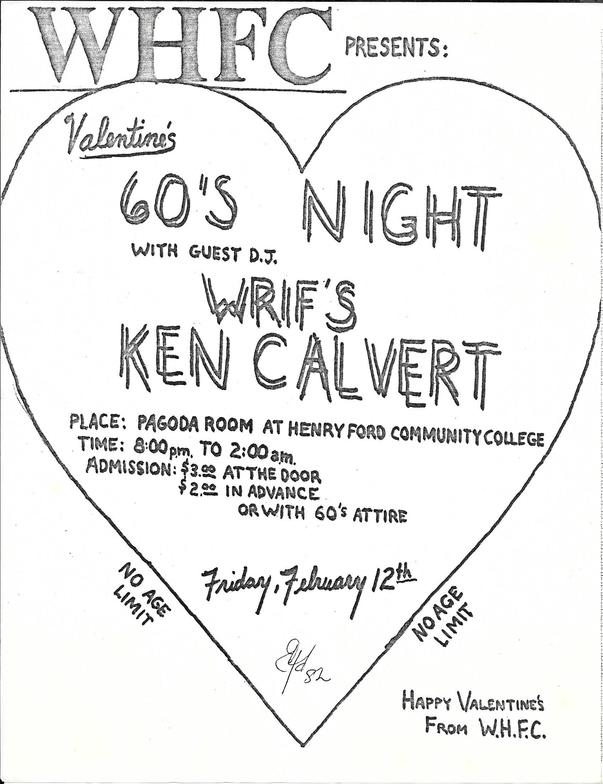 WHFC PRESENTS:
Valentine's
60'S NIGHT
WITH GUEST D.J.
WRIF'S
KEN CALVERT
PLACE: PAGODA ROOM AT HENRY FORD COMMUNITY COLLEGE
TIME: 8:00 pm. TO 2:00 am.
ADMISSION: $3.00 AT THE DOOR
$2.00 IN ADVANCE
OR WITH 60'S ATTIRE
Friday, February 12th
NO AGE
LIMIT
NO AGE
LIMIT
82
HAPPY VALENTINE'S
FROM W.H.F.C.